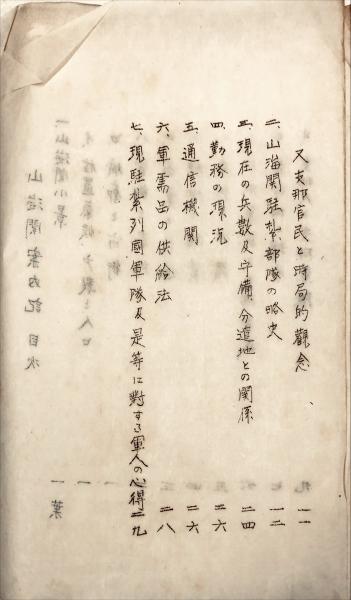 又支那官民と時局的觀念、 一一
二、山海關駐紮部隊の略史 一二
三、現在の兵數及守備分遣地との關係 二四
四、勤務の現況 二六
五、通信機關 二六
六、軍需品の供給法 二八
七、現駐紮列國軍隊及是等に對する軍人の心得 二九
一山海關小景 一葉
山海關案内記 目次